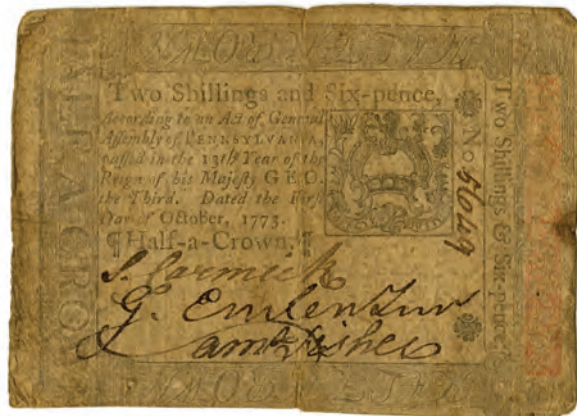 Two Shillings and Six-pence,
According to an Act of General
Assembly of PENNSYLVANIA,
passed in the 13th Year of the
Reign of his Majesty GEO.
the Third. Dated the First
Day of October, 1773.
¶Half-a-Crown.¶
No
Two Shillings & Six-pence
HALF A CRO
G. Emlen Junr
Saml Fisher